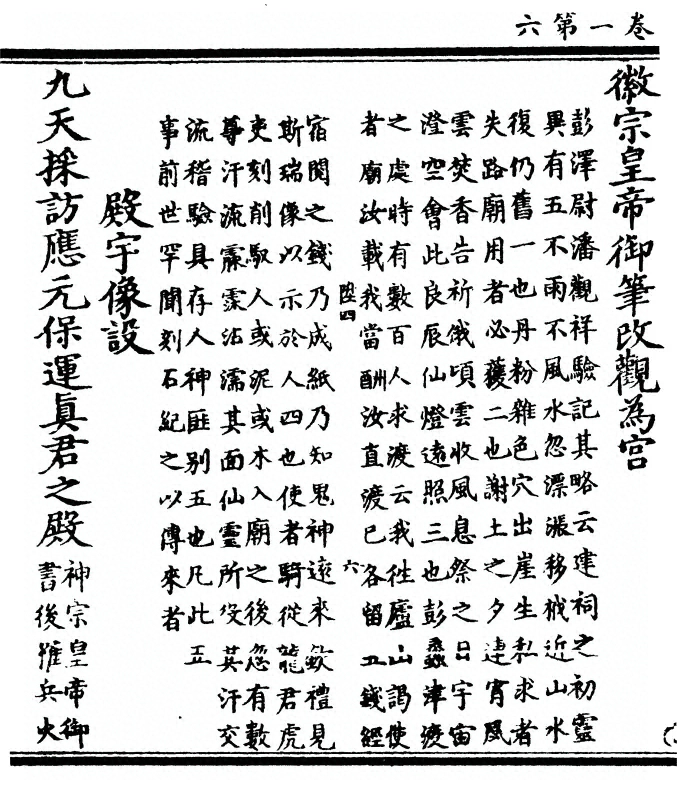 卷一第六
徽宗皇帝御筆改觀為宮
彭澤尉潘觀祥驗記其略云建祠之初靈
異有五不雨不風水忽漂漲移栰近山水
復仍舊一也丹粉雜色穴出崖生私求者
失路廟用者必獲二也謝土之夕連宵風
雲焚香告祈俄頃雲收風息祭之日宇宙
澄空會此良辰仙燈遠照三也彭蠡津渡
之處時有數百人求渡云我徃廬山謁使
者廟汝載我當酬汝直渡已各留五錢經
陞四 六
宿閱之錢乃成紙乃知鬼神遠來歆禮見
斯瑞像以示於人四也使者騎從龍君虎
吏刻削馭人或泥或木入廟之後忽有數
尊汗流霢霂沾濡其面仙靈所役其汗交
流稽驗具存人神匪別五也凡此五
事前世罕聞刻石紀之以傳來者
殿宇像設
九天採訪應元保運眞君之殿神宗皇帝御
書後罹兵火